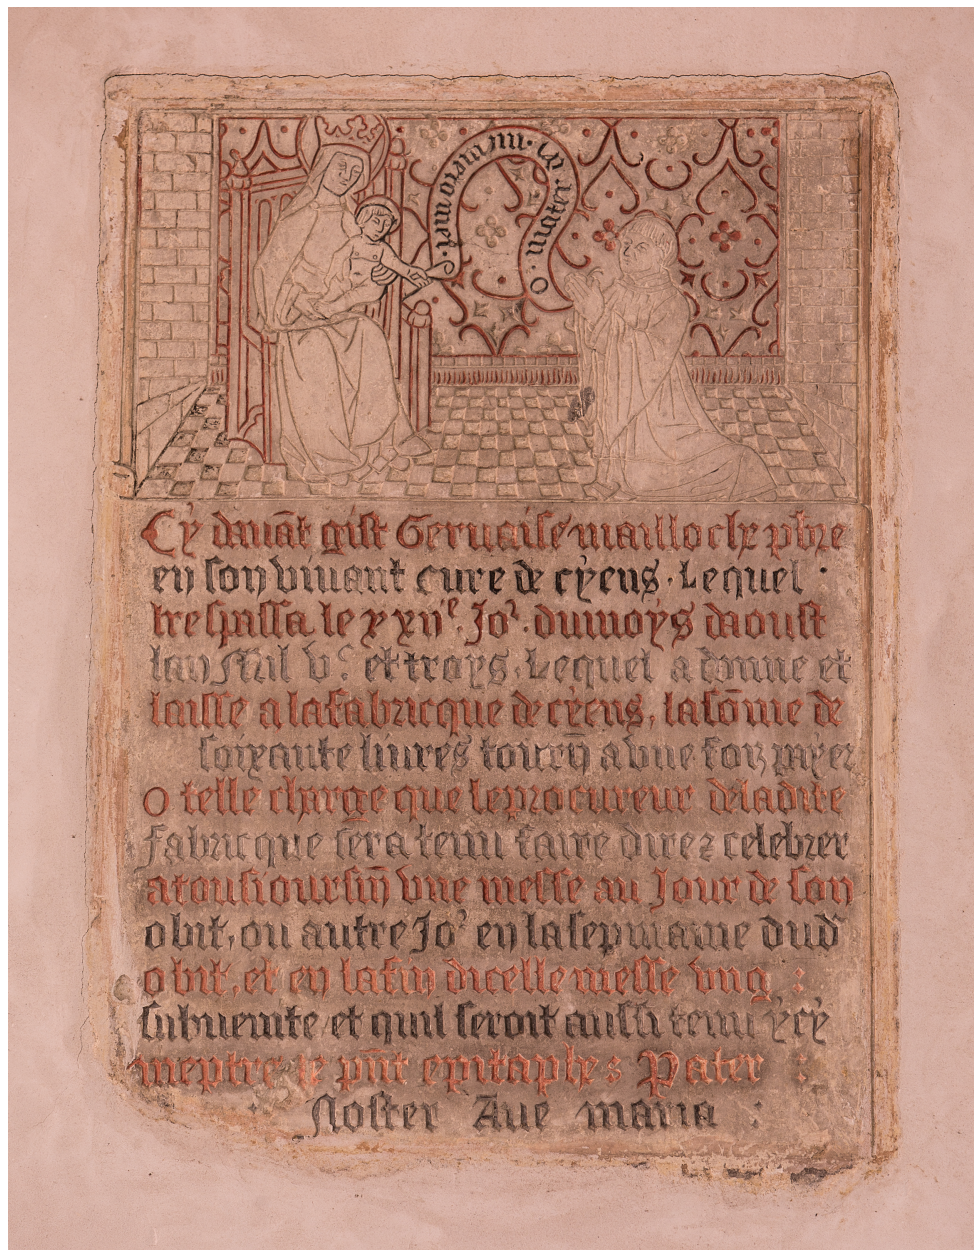 o mater dei memento mei
Cy davāt gist Gervaise maillochx pb̄re
en son vivant cure de cyens. Lequel
trespassa le xxiiᵉ. Joʳ. du moys daoust
lan Mil vᶜ. et troys. Lequel a donne et
laisse a la fabricque de cyens, la sōme de
soixante livres tourn̄ a une foiz payer
o telle charge que le procureur de ladite
fabricque sera tenu faire dire z celebrer
a tousioursm̄ une messe au Jour de son
obit, ou autre Joʳ en la sepmaine dud
obit, et en la fin dicelle messe ung :
subvenite et quil seroit aussi tenu ycy
meptre le pn̄t epitaphe : Pater :
Noster Ave maria :